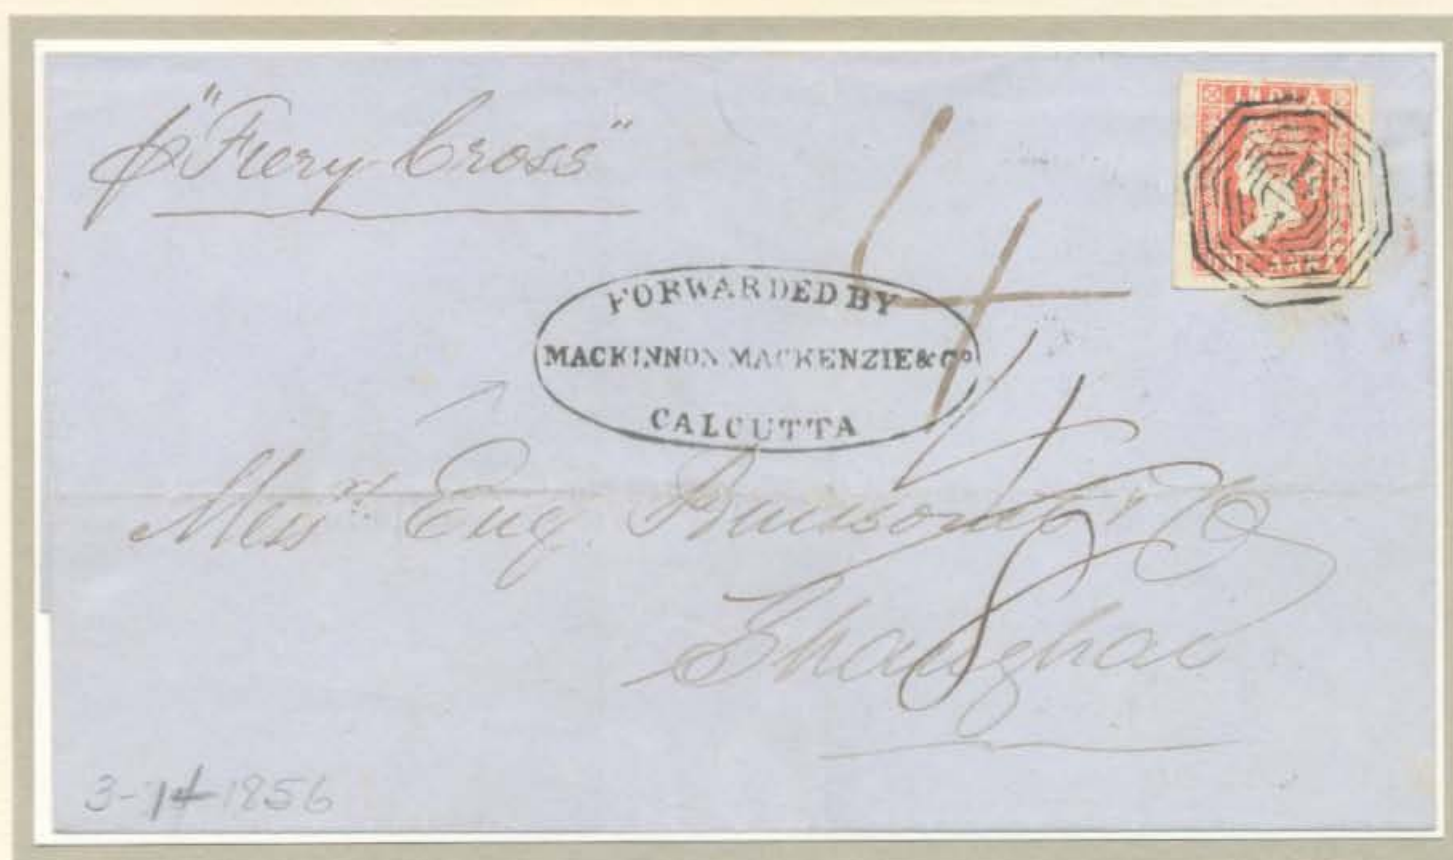 p "Fiery Cross"
INDIA
4
FORWARDED BY
MACKINNON MACKENZIE & Co
CALCUTTA
4
Messrs Eug. & Co
8
Shanghai
3-4-1856